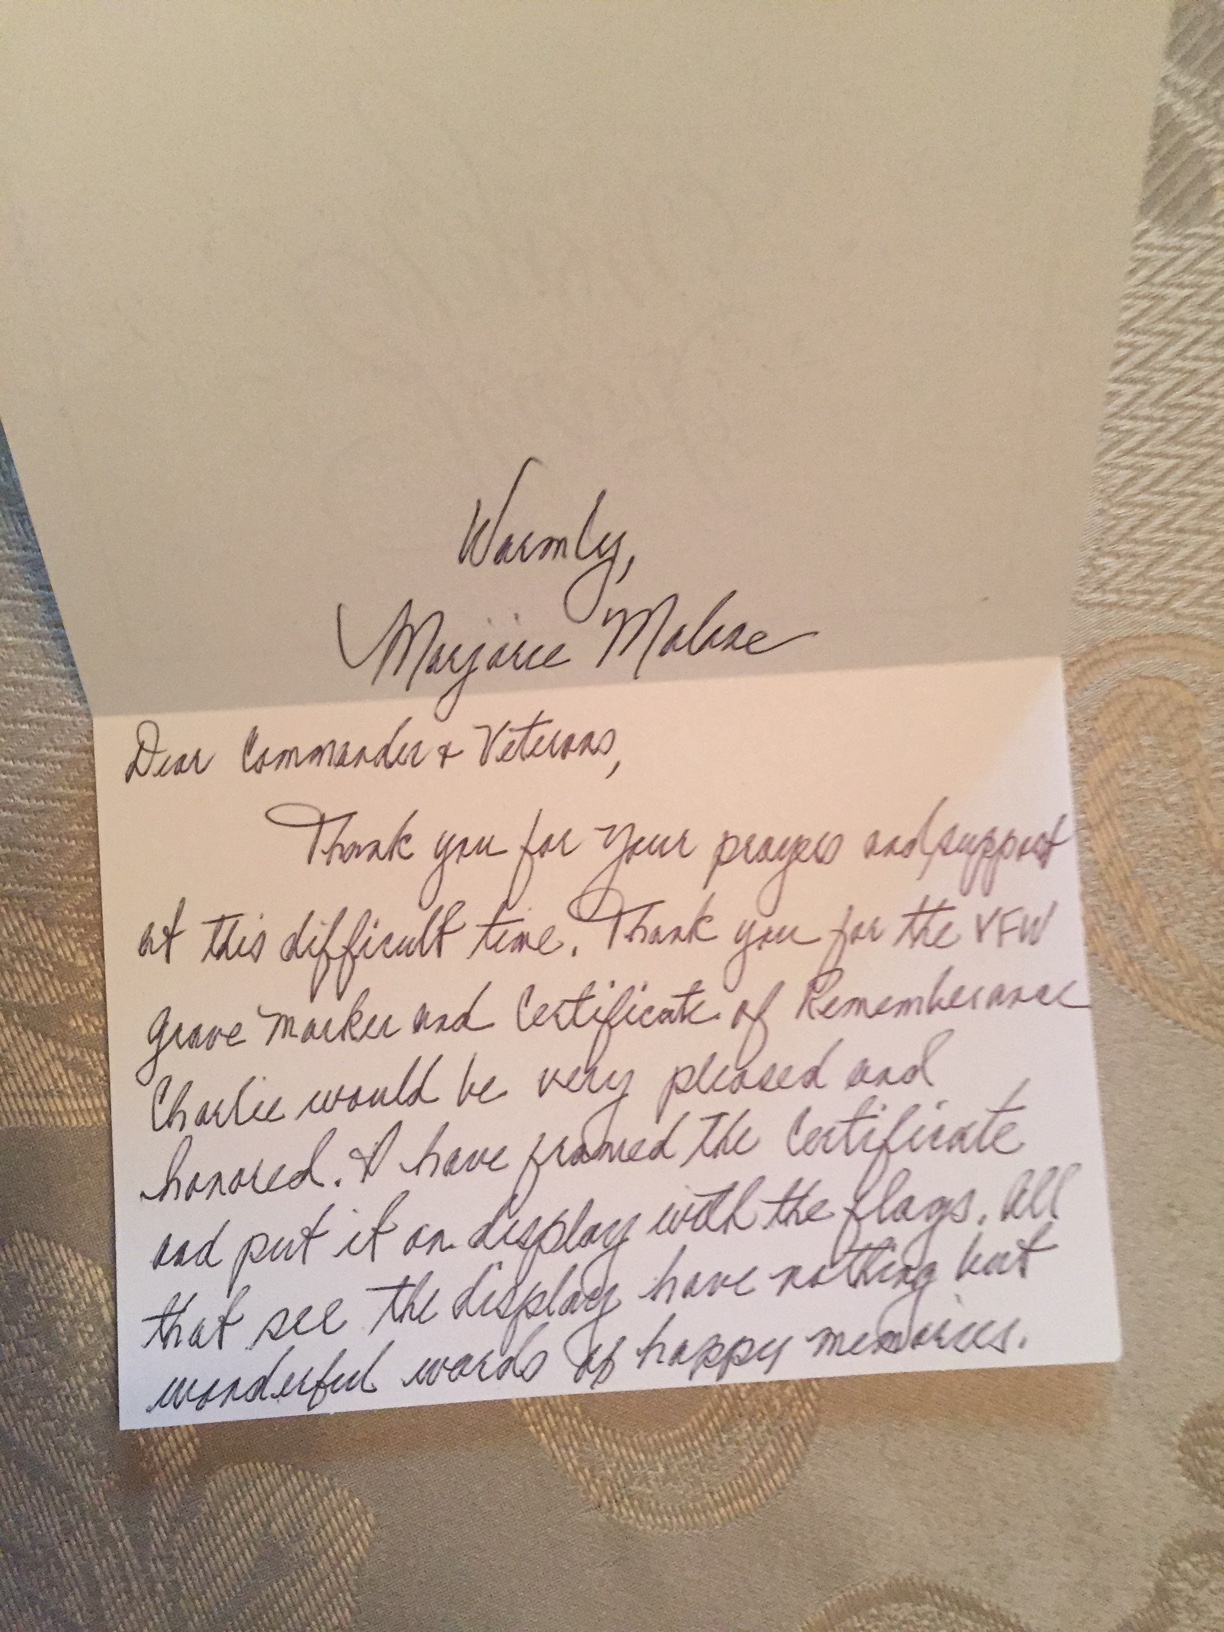 Warmly,
Marjorie Malone
Dear Commander & Veterans,
Thank you for your prayers and support
at this difficult time. Thank you for the VFW
grave marker and Certificate of Rememberance
Charlie would be very pleased and
honored. I have framed the Certificate
and put it on display with the flags. All
that see the display have nothing but
wonderful words of happy memories.